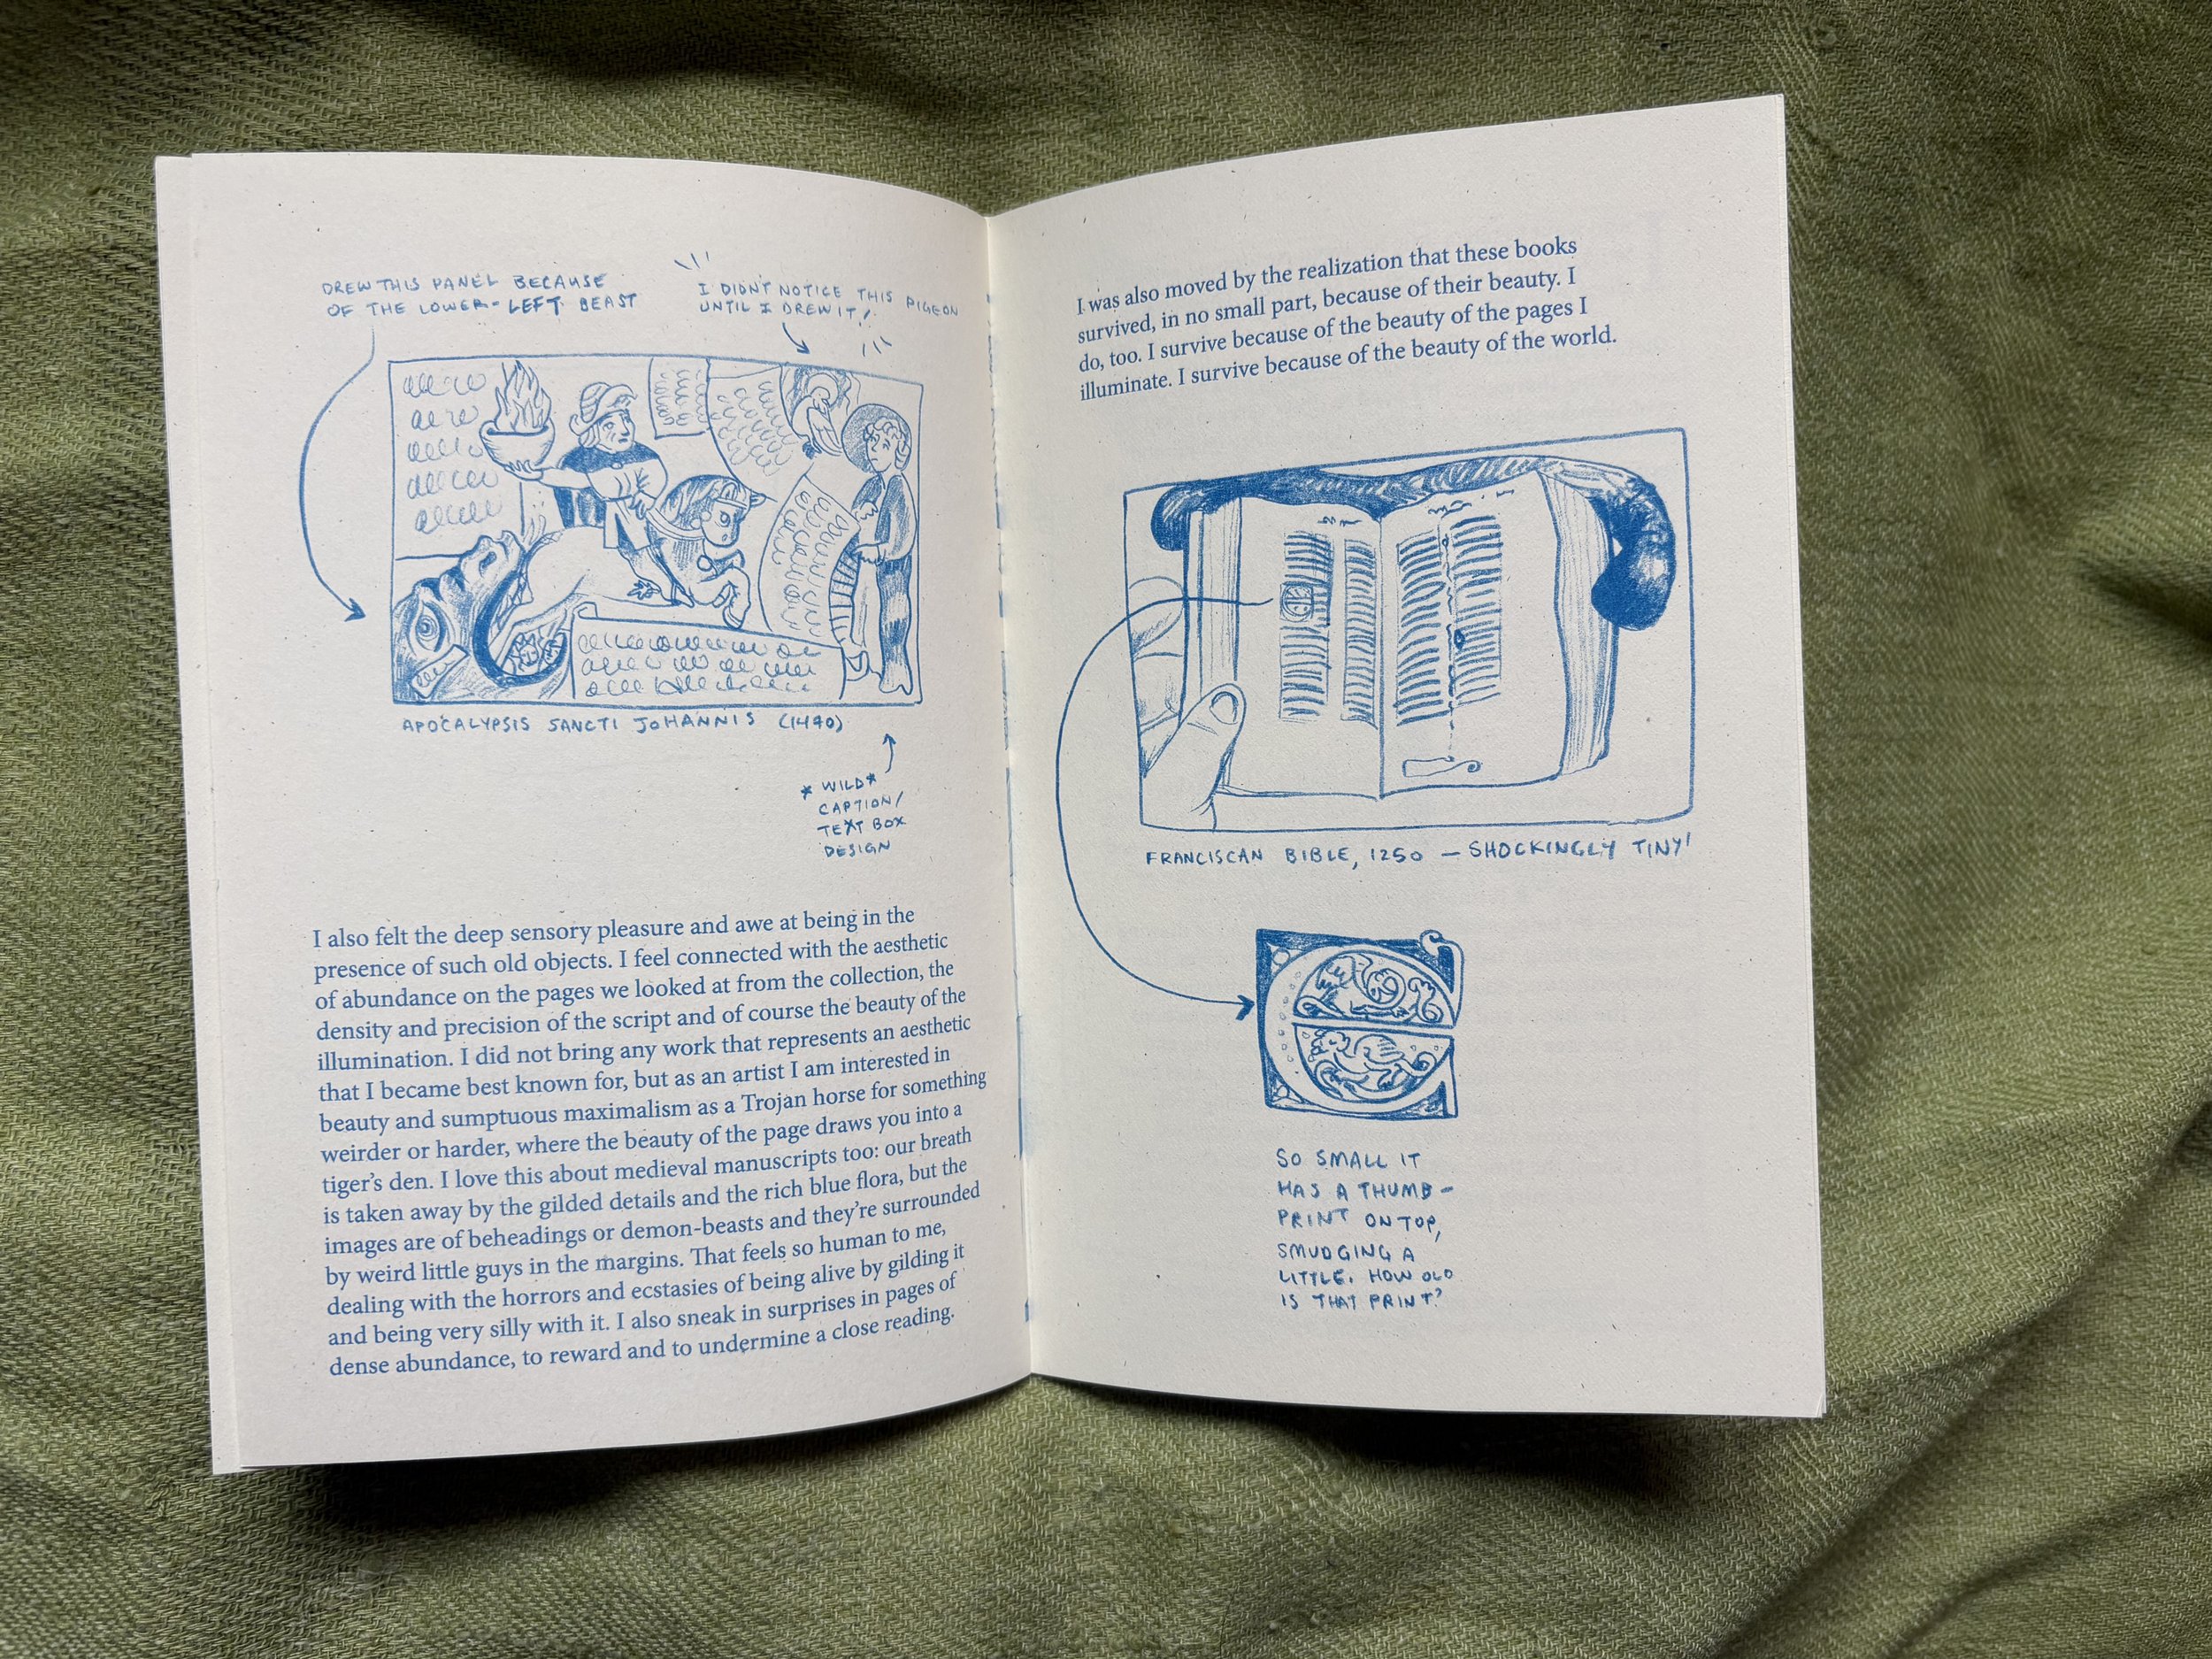 DREW THIS PANEL BECAUSE
OF THE LOWER-LEFT BEAST
I DIDN'T NOTICE THIS PIGEON
UNTIL I DREW IT!
APOCALYPSIS SANCTI JOHANNIS (1470)
*WILD*
CAPTION/
TEXT BOX
DESIGN
I also felt the deep sensory pleasure and awe at being in the
presence of such old objects. I feel connected with the aesthetic
of abundance on the pages we looked at from the collection, the
density and precision of the script and of course the beauty of the
illumination. I did not bring any work that represents an aesthetic
that I became best known for, but as an artist I am interested in
beauty and sumptuous maximalism as a Trojan horse for something
weirder or harder, where the beauty of the page draws you into a
tiger's den. I love this about medieval manuscripts too: our breath
is taken away by the gilded details and the rich blue flora, but the
images are of beheadings or demon-beasts and they're surrounded
by weird little guys in the margins. That feels so human to me,
dealing with the horrors and ecstasies of being alive by gilding it
and being very silly with it. I also sneak in surprises in pages of
dense abundance, to reward and to undermine a close reading.
I was also moved by the realization that these books
survived, in no small part, because of their beauty. I
do, too. I survive because of the beauty of the pages I
illuminate. I survive because of the beauty of the world.
FRANCISCAN BIBLE, 1250 — SHOCKINGLY TINY!
SO SMALL IT
HAS A THUMB-
PRINT ON TOP,
SMUDGING A
LITTLE. HOW OLD
IS THAT PRINT?